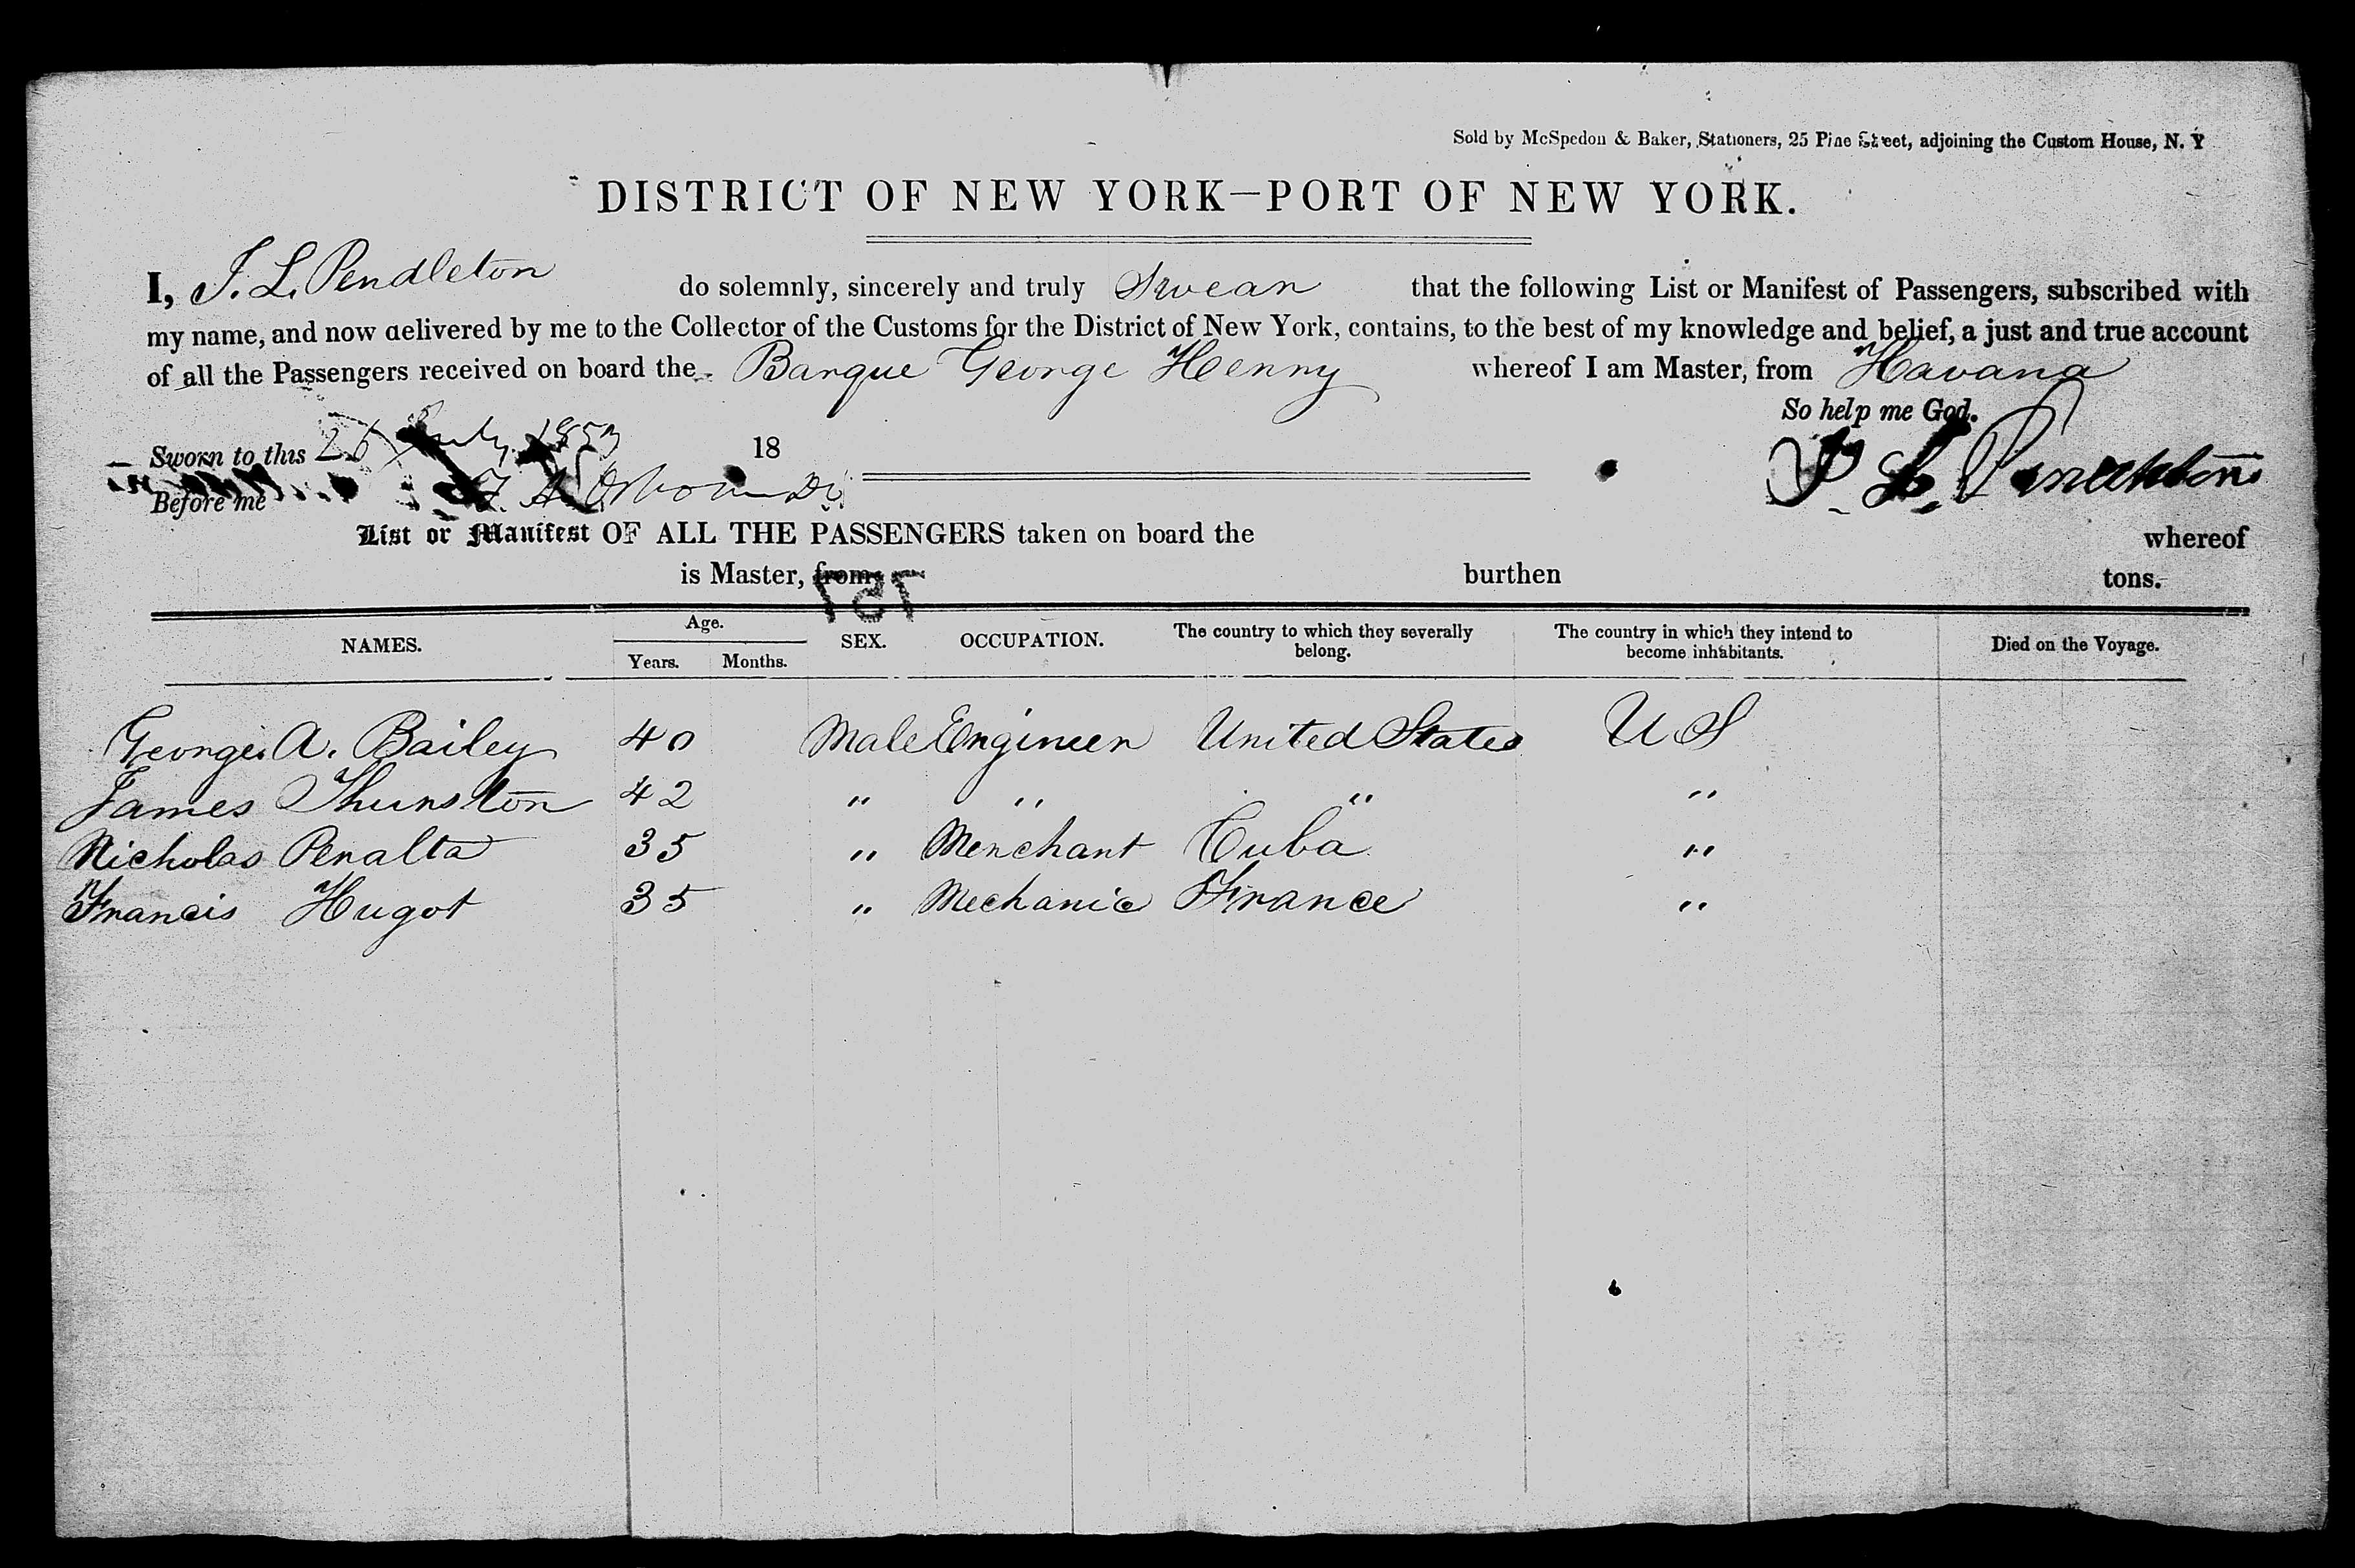 Sold by McSpedon & Baker, Stationers, 25 Pine Street, adjoining the Custom House, N. Y
DISTRICT OF NEW YORK—PORT OF NEW YORK.
I, J. L. Pendleton do solemnly, sincerely and truly Swear that the following List or Manifest of Passengers, subscribed with
my name, and now delivered by me to the Collector of the Customs for the District of New York, contains, to the best of my knowledge and belief, a just and true account
of all the Passengers received on board the Barque George Henry whereof I am Master, from Havana
So help me God.
Sworn to this 26 July 1853 18
J L Pendleton
Before me
List or Manifest OF ALL THE PASSENGERS taken on board the whereof
is Master, from burthen tons.
151
NAMES. Age. Years. Months. SEX. OCCUPATION. The country to which they severally belong. The country in which they intend to become inhabitants. Died on the Voyage.
George A. Bailey 40 Male Engineer United States U S
James Thurston 42 " " " "
Nicholas Peralta 35 " Merchant Cuba "
Francis Hugot 35 " Mechanic France "